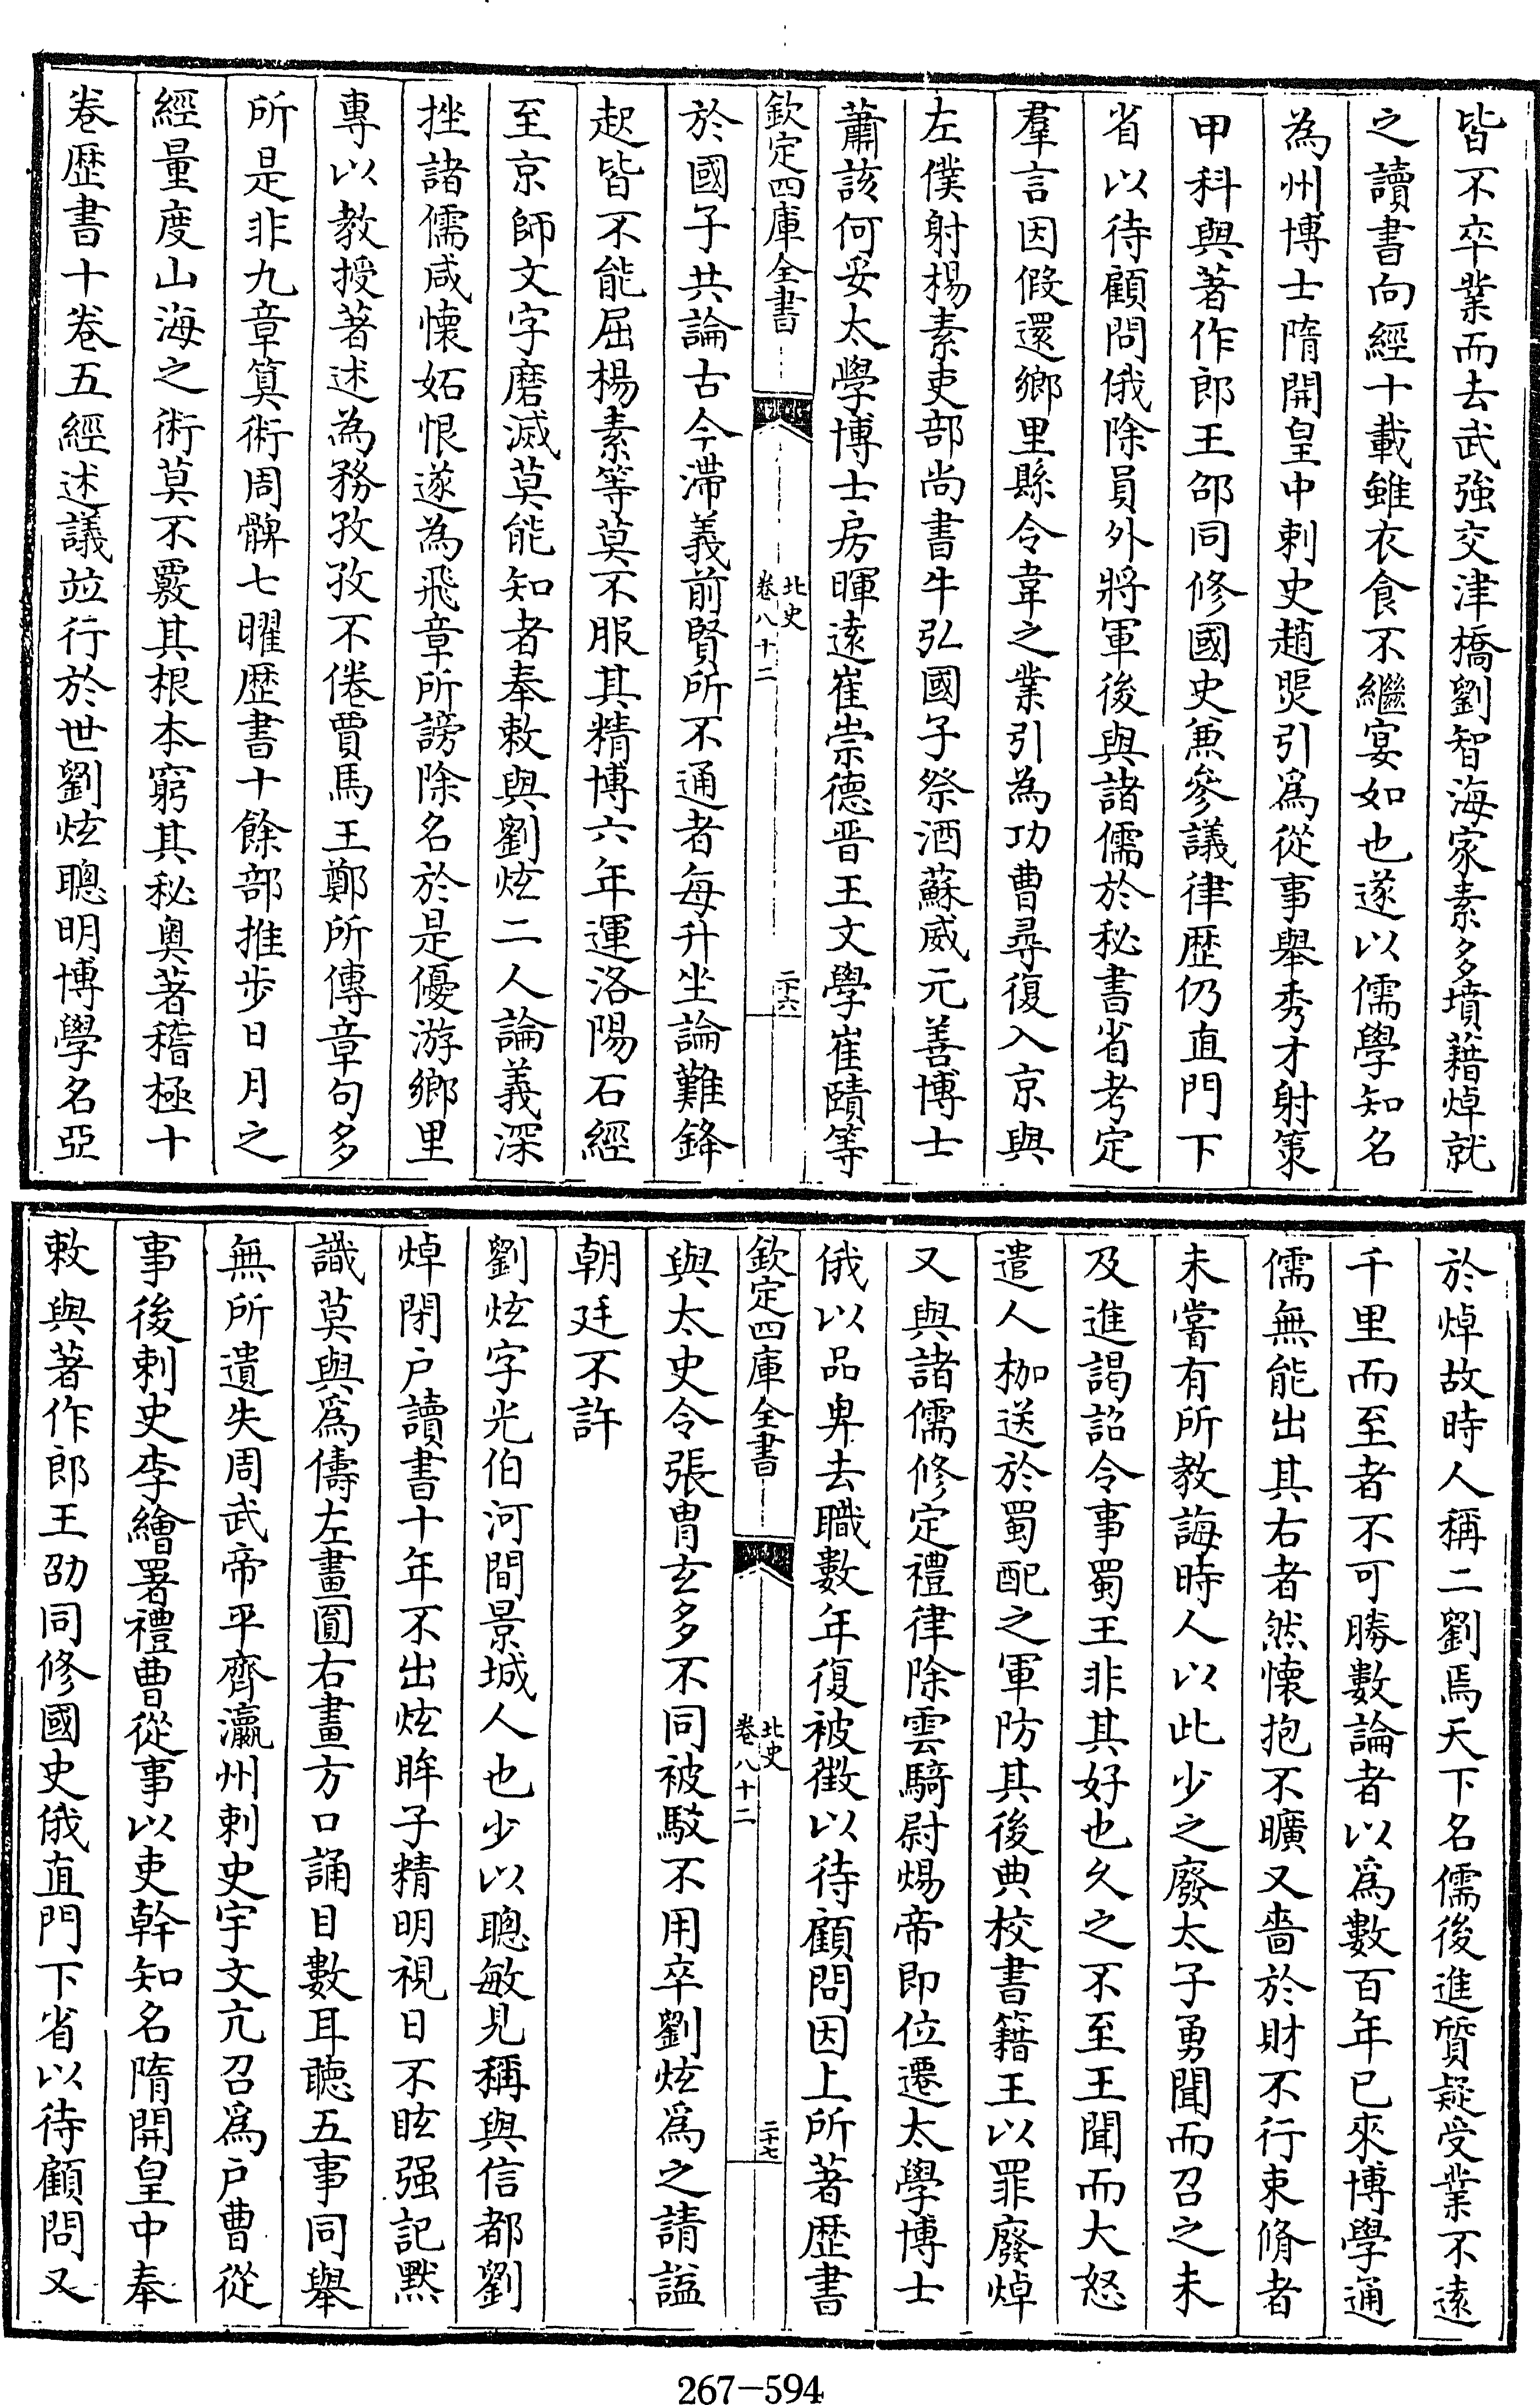 皆不卒業而去武強交津橋劉智海家素多墳籍焯就
之讀書向經十載雖衣食不繼宴如也遂以儒學知名
為州博士隋開皇中刺史趙煚引爲從事舉秀才射策
甲科與著作郎王邵同修國史兼參議律歴仍直門下
省以待顧問俄除員外將軍後與諸儒於秘書省考定
羣言因假還鄉里縣令韋之業引為功曹尋復入京與
左僕射楊素吏部尚書牛弘國子祭酒蘇威元善博士
蕭該何妥太學博士房暉遠崔崇德晋王文學崔賾等
欽定四庫全書
北史
卷八十二
二十六
於國子共論古今滯義前賢所不通者每升坐論難鋒
起皆不能屈楊素等莫不服其精博六年運洛陽石經
至京師文字磨滅莫能知者奉敕與劉炫二人論義深
挫諸儒咸懷妬恨遂為飛章所謗除名於是優游鄉里
專以教授著述為務孜孜不倦賈馬王鄭所傳章句多
所是非九章算術周髀七曜歴書十餘部推步日月之
經量度山海之術莫不覈其根本窮其秘奥著稽極十
卷歴書十卷五經述議並行於世劉炫聰明博學名亞
於焯故時人稱二劉焉天下名儒後進質疑受業不遠
千里而至者不可勝數論者以爲數百年已來博學通
儒無能出其右者然懐抱不曠又嗇於財不行束脩者
未嘗有所教誨時人以此少之廢太子勇聞而召之未
及進謁詔令事蜀王非其好也乆之不至王聞而大怒
遣人枷送於蜀配之軍防其後典校書籍王以罪廢焯
又與諸儒修定禮律除雲騎尉煬帝即位遷太學博士
俄以品卑去職數年復被徵以待顧問因上所著歴書
欽定四庫全書
北史
卷八十二
二十七
與太史令張胄玄多不同被駁不用卒劉炫爲之請諡
朝廷不許
劉炫字光伯河間景城人也少以聰敏見稱與信都劉
焯閉户讀書十年不出炫眸子精明視日不眩强記黙
識莫與爲儔左畫圓右畫方口誦目數耳聽五事同舉
無所遺失周武帝平齊瀛州刺史宇文亢召爲户曹從
事後刺史李繪署禮曹從事以吏幹知名隋開皇中奉
敕與著作郎王劭同修國史俄直門下省以待顧問又
267-594